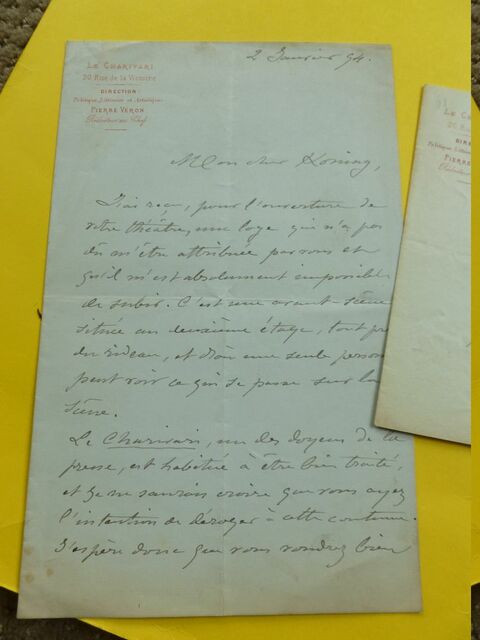 Le Charivari
20 Rue de la Victoire
DIRECTION
Politique, Littéraire et Artistique
PIERRE VERON
Rédacteur en Chef
2 Janvier 94.
Mon cher Koning,
J'ai reçu, pour l'ouverture de
votre théâtre, une loge qui n'a pas
dû m'être attribuée par vous et
qu'il m'est absolument impossible
de subir. C'est une avant-scène
située au deuxième étage, tout près
du rideau, et d'où une seule person
peut voir ce qui se passe sur la
scène.
Le Charivari, un des doyens de la
presse, est habitué à être bien traité,
et je ne saurais croire que vous ayez
l'intention de déroger à cette coutume.
J'espère donc que vous voudrez bien
Le Ch
20
DIR
Politique
PIERRE